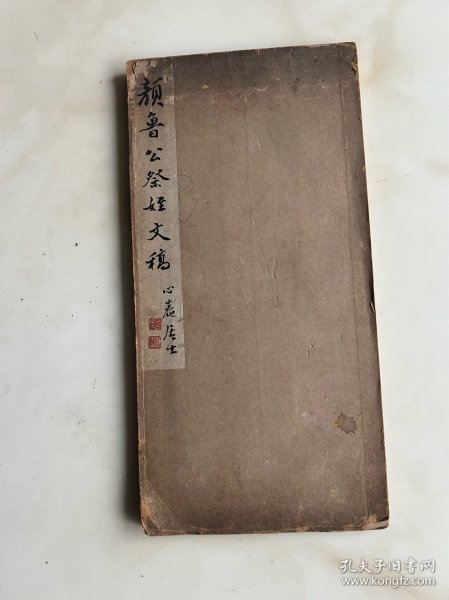 颜鲁公祭姪文稿
心菴居士
孔夫子旧书网
www.kongfz.com